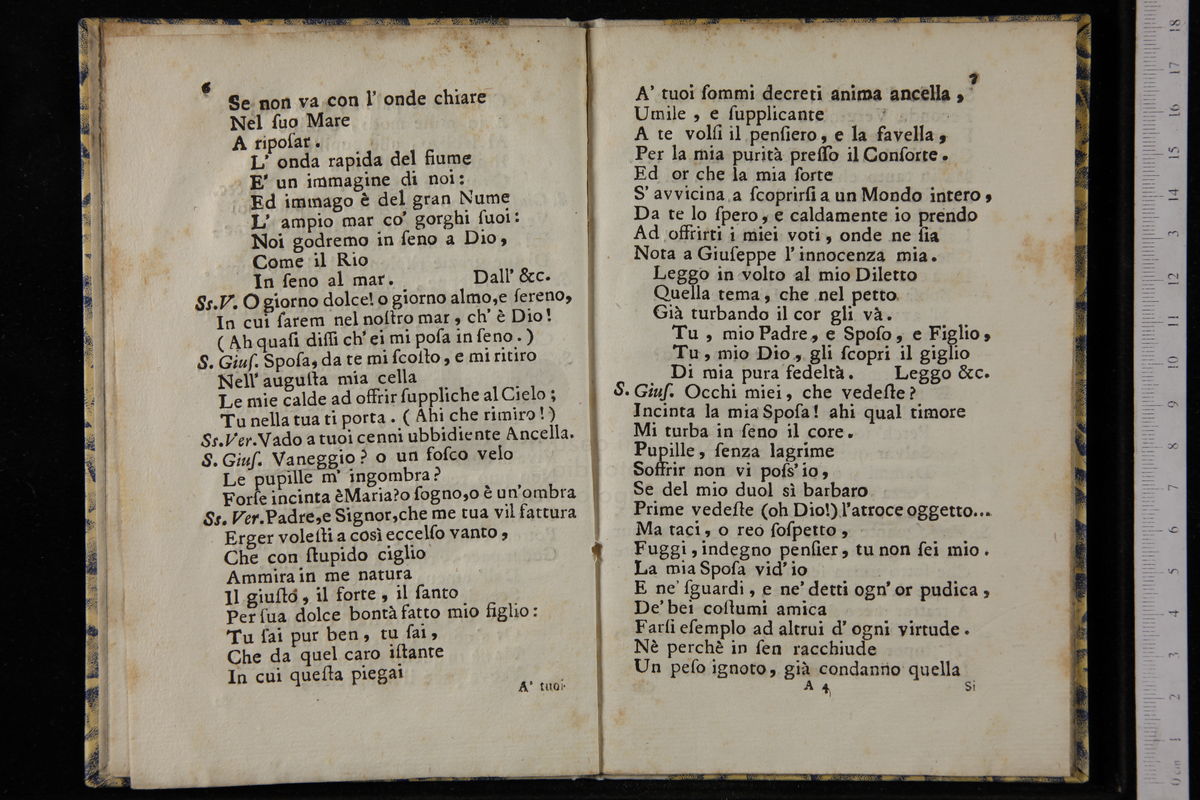 6
Se non va con l' onde chiare
Nel ſuo Mare
A ripoſar.
L' onda rapida del fiume
E' un immagine di noi:
Ed immago è del gran Nume
L' ampio mar co' gorghi ſuoi:
Noi godremo in ſeno a Dio,
Come il Rio
In ſeno al mar. Dall' &c.
Ss.V. O giorno dolce! o giorno almo, e ſereno,
In cui ſarem nel noſtro mar, ch' è Dio!
(Ah quaſi diſſi ch' ei mi poſa in ſeno.)
S. Giuſ. Spoſa, da te mi ſcoſto, e mi ritiro
Nell' auguſta mia cella
Le mie calde ad offrir ſuppliche al Cielo;
Tu nella tua ti porta. (Ahi che rimiro!)
Ss.Ver. Vado a tuoi cenni ubbidiente Ancella.
S. Giuſ. Vaneggio? o un foſco velo
Le pupille m' ingombra?
Forſe incinta è Maria? o ſogno, o è un' ombra
Ss. Ver. Padre, e Signor, che me tua vil fattura
Erger voleſti a così eccelſo vanto,
Che con ſtupido ciglio
Ammira in me natura
Il giuſto, il forte, il ſanto
Per ſua dolce bontà fatto mio figlio:
Tu ſai pur ben, tu ſai,
Che da quel caro iſtante
In cui queſta piegai
A' tuoi
7
A' tuoi ſommi decreti anima ancella,
Umile, e ſupplicante
A te volſi il penſiero, e la favella,
Per la mia purità preſſo il Conſorte.
Ed or che la mia ſorte
S' avvicina a ſcoprirſi a un Mondo intero,
Da te lo ſpero, e caldamente io prendo
Ad offrirti i miei voti, onde ne ſia
Nota a Giuſeppe l' innocenza mia.
Leggo in volto al mio Diletto
Quella tema, che nel petto
Già turbando il cor gli và.
Tu, mio Padre, e Spoſo, e Figlio,
Tu, mio Dio, gli ſcopri il giglio
Di mia pura fedeltà. Leggo &c.
S. Giuſ. Occhi miei, che vedeſte?
Incinta la mia Spoſa! ahi qual timore
Mi turba in ſeno il core.
Pupille, ſenza lagrime
Soffrir non vi poſs' io,
Se del mio duol sì barbaro
Prime vedeſte (oh Dio!) l' atroce oggetto...
Ma taci, o reo ſoſpetto,
Fuggi, indegno penſier, tu non ſei mio.
La mia Spoſa vid' io
E ne' ſguardi, e ne' detti ogn' or pudica,
De' bei coſtumi amica
Farſi eſemplo ad altrui d' ogni virtude.
Nè perchè in ſen racchiude
Un peſo ignoto, già condanno quella
A 4 Si